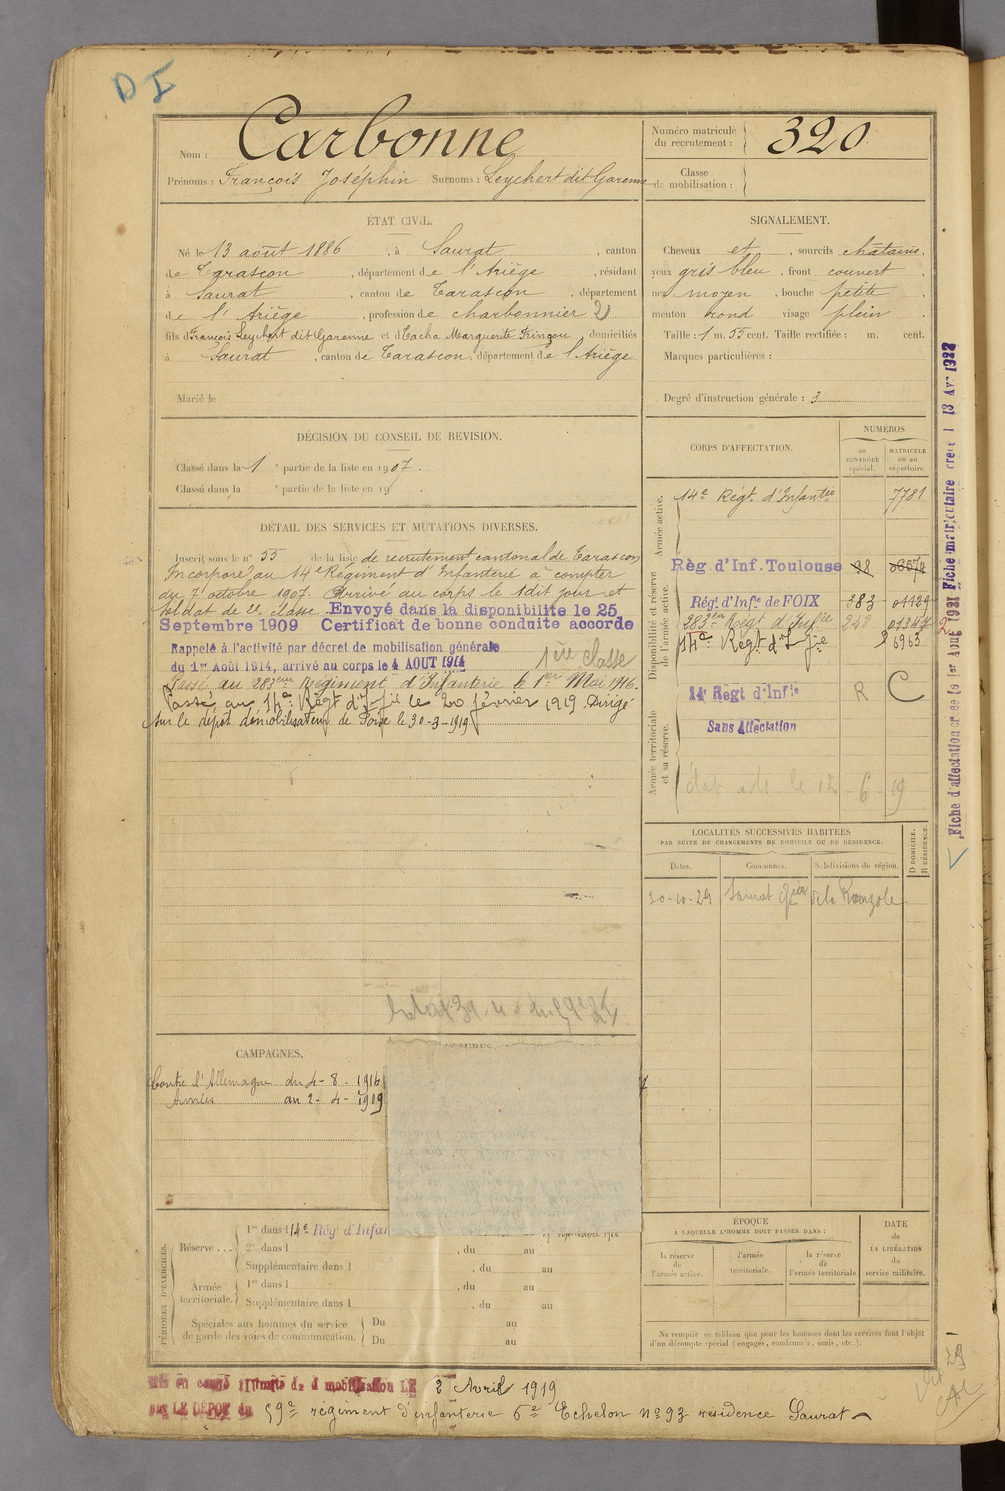 DI
Nom : Carbonne
Prénoms : François Joséphin Surnoms : Leychert dit Garenne
Numéro matricule du recrutement : 320
Classe de mobilisation :
ÉTAT CIVIL.
Né le 13 août 1886, à Saurat, canton
de Tarascon, département de l'Ariège, résidant
à Saurat, canton de Tarascon, département
de l'Ariège, profession de charbonnier 2
fils de François Leychert dit Garenne et d'Eache Marguerite Trinçou domiciliés
à Saurat, canton de Tarascon, département de l'Ariège
Marié le
SIGNALEMENT.
Cheveux et, sourcils châtains,
yeux gris bleu, front couvert
nez moyen, bouche petite
menton rond visage plein
Taille : 1 m. 55 cent. Taille rectifiée : m. cent.
Marques particulières :
Degré d'instruction générale : 3
DÉCISION DU CONSEIL DE REVISION.
Classé dans la 1e partie de la liste en 1907.
Classé dans la e partie de la liste en 19
DÉTAIL DES SERVICES ET MUTATIONS DIVERSES.
Inscrit sous le n° 55 de la liste de recrutement cantonal de Tarascon
Incorporé au 14e Régiment d'Infanterie à compter
du 7 octobre 1907. Arrivé au corps le 1dit jour et
soldat de 2e classe. Envoyé dans la disponibilite le 25
Septembre 1909 Certificat de bonne conduite accorde
Rappelé à l'activité par décret de mobilisation générale
du 1er Août 1914, arrivé au corps le 4 AOUT 1914
1ère classe
Passé au 283eme Régiment d'Infanterie le 1er Mai 1916.
Passé au 14e Régt d'Infie le 20 février 1919 Dirigé
sur le dépôt démobilisateur de Foix le 30-3-1919
CORPS D'AFFECTATION.
NUMÉROS
au CONTRÔLE spécial.
MATRICULE ou au répertoire.
Armée active.
14e Régt. d'Infantie 7781
Disponibilité et réserve de l'armée active.
Règ. d'Inf. Toulouse
Régt. d'Infie de FOIX 283 01129
283eme Régt d'Infie 243 01347
14e Régt d'Infie 6963
Armée territoriale et sa réserve.
14e Règt d'Infie R C
Sans Affectation
6 19
Fiche d'affectation créée le 1er Août 1921 Fiche matriculaire créée l 13 Avr 1928
LOCALITÉS SUCCESSIVES HABITÉES
PAR SUITE DE CHANGEMENTS DE DOMICILE OU DE RÉSIDENCE.
Dates. Communes. Subdivisions de région. D DOMICILE. R RÉSIDENCE.
30-10-29 Saurat qier de la Ranzole
CAMPAGNES.
Contre l'Allemagne du 4-8-1914
Armées au 2-4-1919
PÉRIODES D'EXERCICES.
Réserve... 1re dans l 14e Rég' d'Infan
2e dans l , du au
Supplémentaire dans l , du au
Armée territoriale. 1re dans l , du au
Supplémentaire dans l , du au
Spéciales aux hommes du service de garde des voies de communication. Du au
Du au
ÉPOQUE
A LAQUELLE L'HOMME DOIT PASSER DANS :
la réserve de l'armée active.
l'armée territoriale.
la réserve de l'armée territoriale
DATE de LA LIBÉRATION du service militaire.
Ne remplir ce tableau que pour les hommes dont les services font l'objet
d'un décompte spécial (engagés, condamnés, omis, etc.).
Mis en congé illimité de démobilisation LE 2 Avril 1919
par LE DÉPOT du 59e régiment d'infanterie 6e Echelon n° 93 residence Saurat